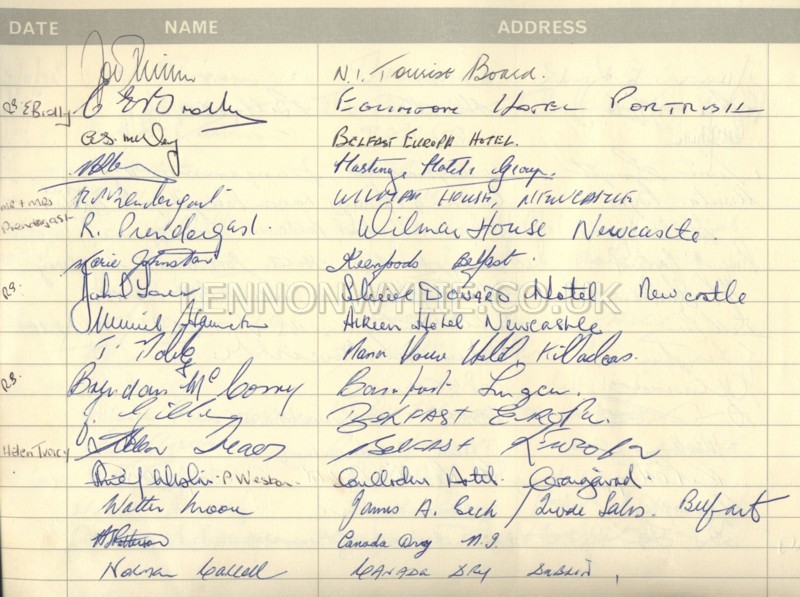 DATE NAME ADDRESS
N.I. Tourist Board.
RS. EBrolly EGLINTON HOTEL PORTRUSH
BELFAST EUROPA HOTEL.
Hastings Hotels Group.
MR + MRS Prendergast R. Prendergast WILMAR HOUSE, NEWCASTLE
R. Prendergast. Wilmar House Newcastle.
Marie Johnston Keenfoods Belfast.
RS. John Slieve Donard Hotel Newcastle
LENNONWYLIE.CO.UK
Muriel Hamilton Hotel Newcastle
T. Manor House Hotel, Killadeas.
RS. Brendan McCorry Lurgan.
BELFAST EUROPA.
Helen Tracey Helen Tracey BELFAST EUROPA
P Weston Culloden Hotel. Craigavad.
Walter Moore James A. / Trade Sales. Belfast
Patterson Canada Dry N.I.
Norman Carroll CANADA DRY DUBLIN,